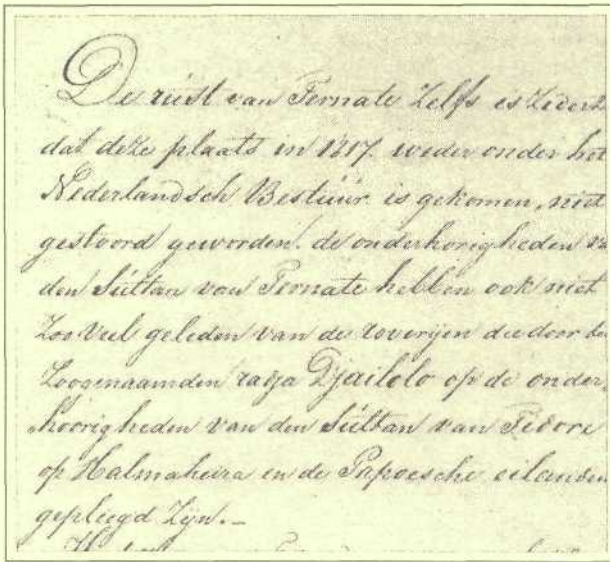 De rust van Ternate Zelfs is Zeder
dat deze plaats in 1817. weder onder het
Nederlandsch Bestuur is gekomen, niet
gestoord geworden. de onderhorigheden
den Sultan van Ternate hebben ook niet
Zoo veel geleden van de roverijen die door
Zoogenaamden raja Djailolo op de onder
hoorigheden van den Sultan van Tidore
op Halmaheira en de Papoesche eilanden
gepleegd Zijn.-